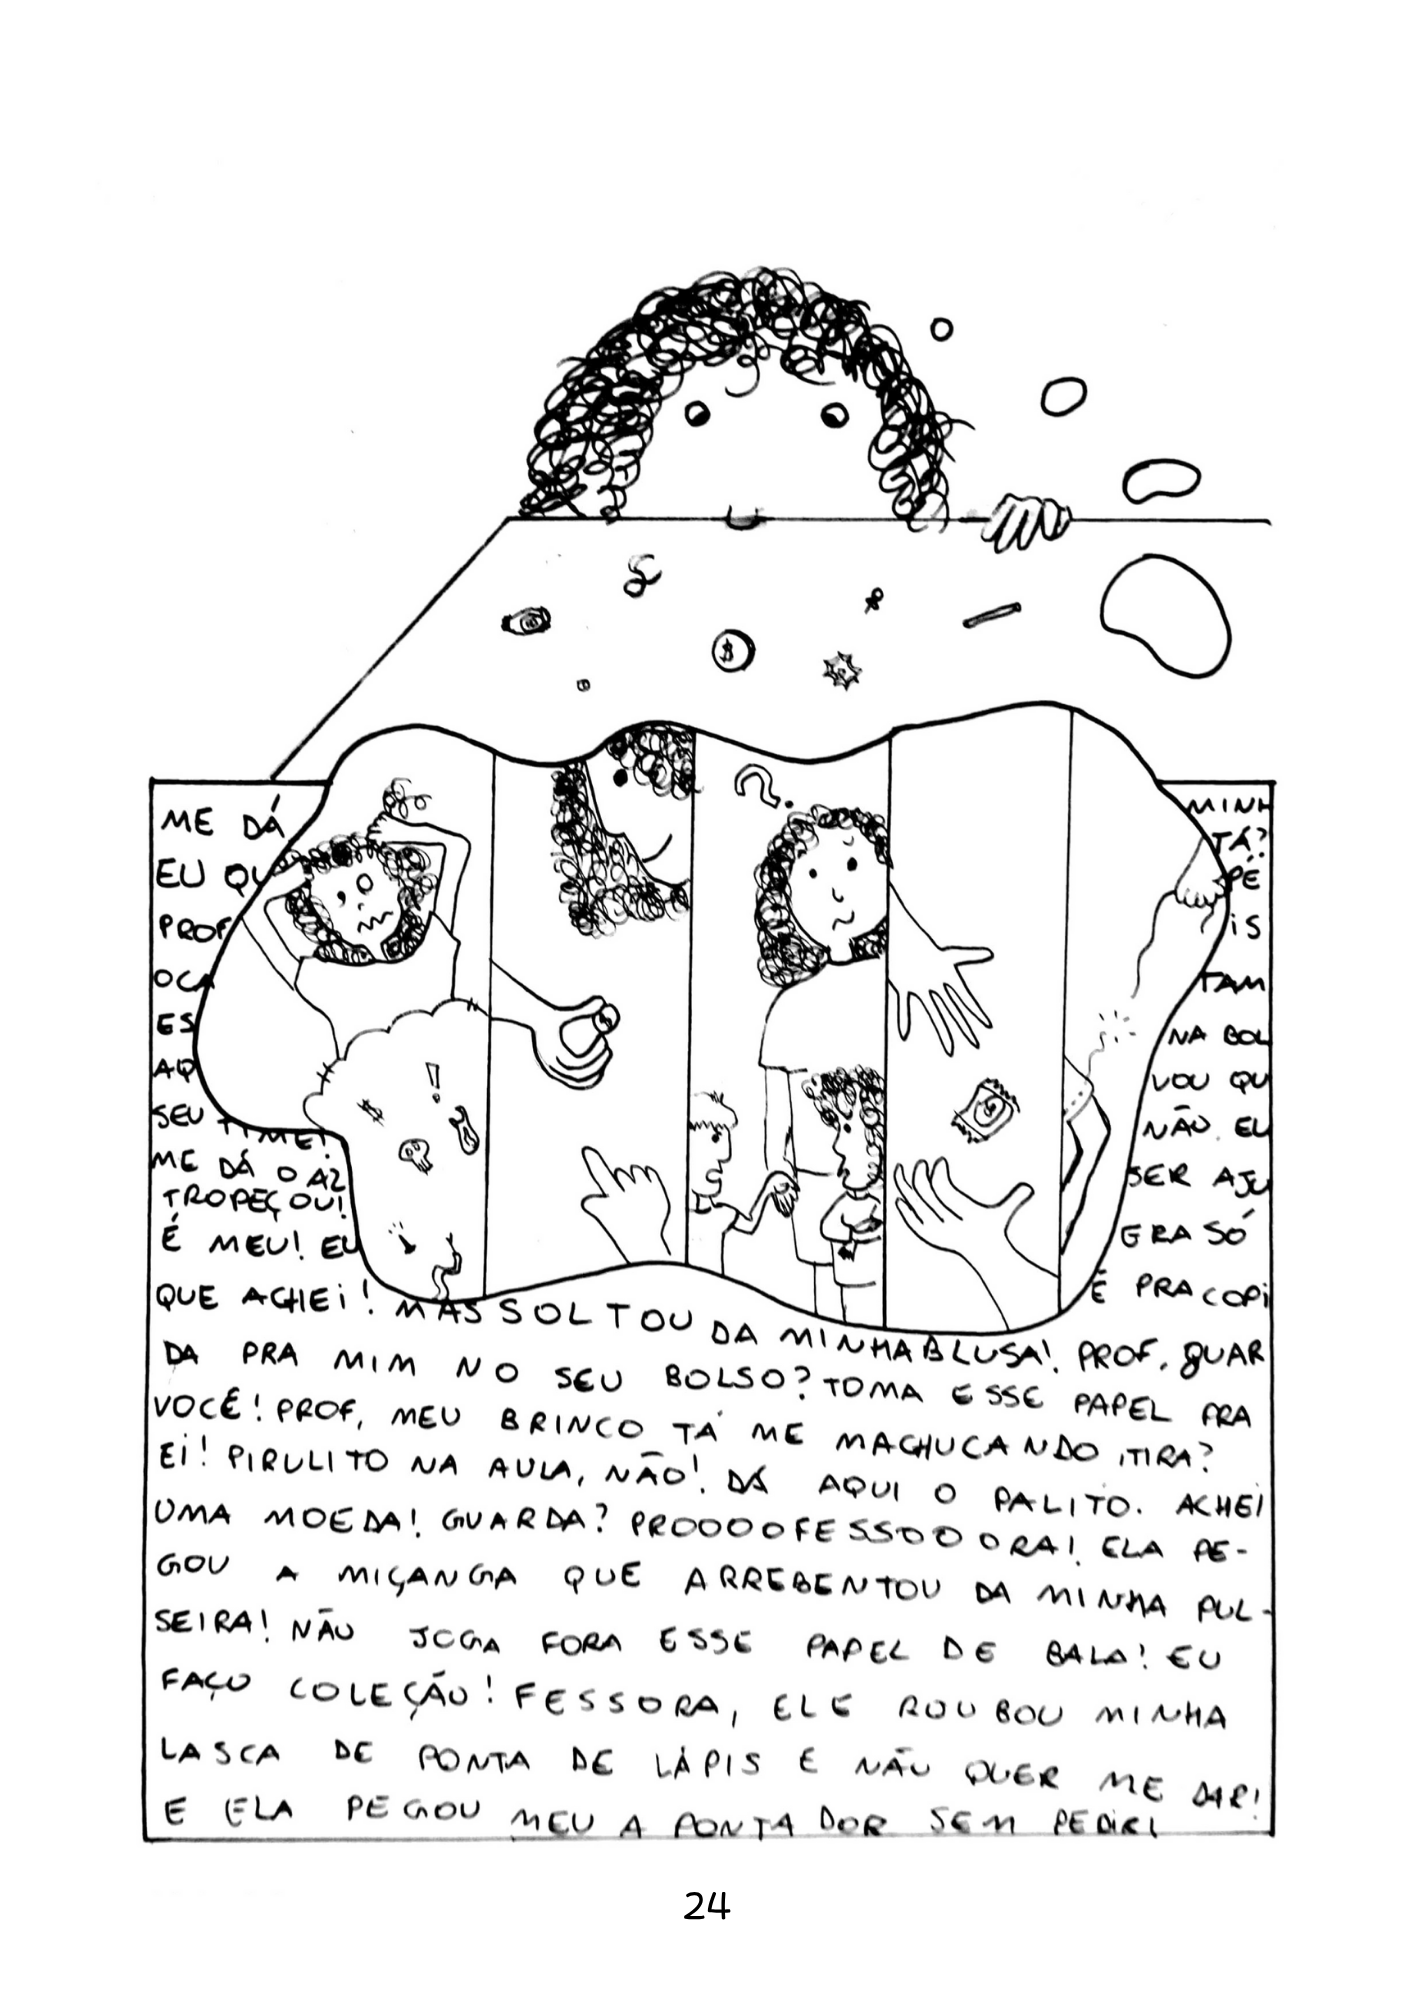 ME DÁ MINH
EU QU TÁ?
PROF PÉ
OCA IS
ES TAM
AQ NA BOL
SEU TIME! VOU QU
ME DÁ O AZ NÃO EU
TROPEÇOU! SER AJU
É MEU! EU ERA SÓ
QUE ACHEI! MAS SOLTOU DA MINHA BLUSA! É PRA COPI
PROF, GUAR
DA PRA MIM NO SEU BOLSO? TOMA ESSE PAPEL PRA
VOCÊ! PROF, MEU BRINCO TÁ ME MACHUCANDO, TIRA?
EI! PIRULITO NA AULA, NÃO! DÁ AQUI O PALITO. ACHEI
UMA MOEDA! GUARDA? PROOOOFESSOOOORA! ELA PE-
GOU A MIÇANGA QUE ARREBENTOU DA MINHA PUL-
SEIRA! NÃO JOGA FORA ESSE PAPEL DE BALA! EU
FAÇO COLEÇÃO! FESSORA, ELE ROUBOU MINHA
LASCA DE PONTA DE LÁPIS E NÃO QUER ME DAR!
E ELA PEGOU MEU APONTADOR SEM PEDIR!
24